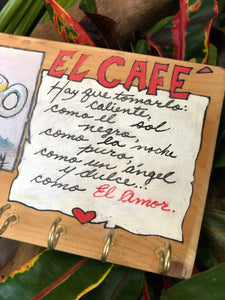 EL CAFE
Hay que tomarlo:
caliente,
como el sol
negro,
como la noche
puro,
como un ángel
y dulce...
como El Amor.